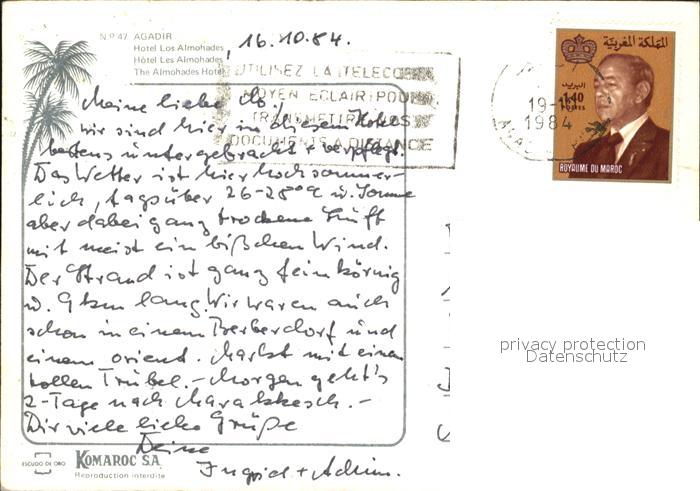 Nº 47 AGADIR
Hotel Los Almohades
Hôtel Les Almohades
The Almohades Hotel
, 16.10.84.
UTILISEZ LA TELECOPIE
MOYEN ECLAIR POUR
TRANSMETTRE VOS
DOCUMENTS A DISTANCE
المملكة المغربية
البريد
1,40
POSTES
ROYAUME DU MAROC
19-10
1984
Meine liebe
wir sind hier in diesem Hotel
bestens untergebracht + verpflegt.
Das Wetter ist hier hochsommer-
lich, tagsüber 26-28°C u. Sonne
aber dabei ganz trockene Luft
mit meist ein bißchen Wind.
Der Strand ist ganz feinkörnig
u. 9 km lang. Wir waren auch
schon in einem Berberdorf und
einem orient. Markt mit einem
tollen Trubel. - Morgen geht's
2-Tage nach Marakkesch. -
Dir viele liebe Grüße
Deine
Ingrid + Achim.
privacy protection
Datenschutz
ESCUDO DE ORO
KOMAROC S.A.
Reproduction interdite